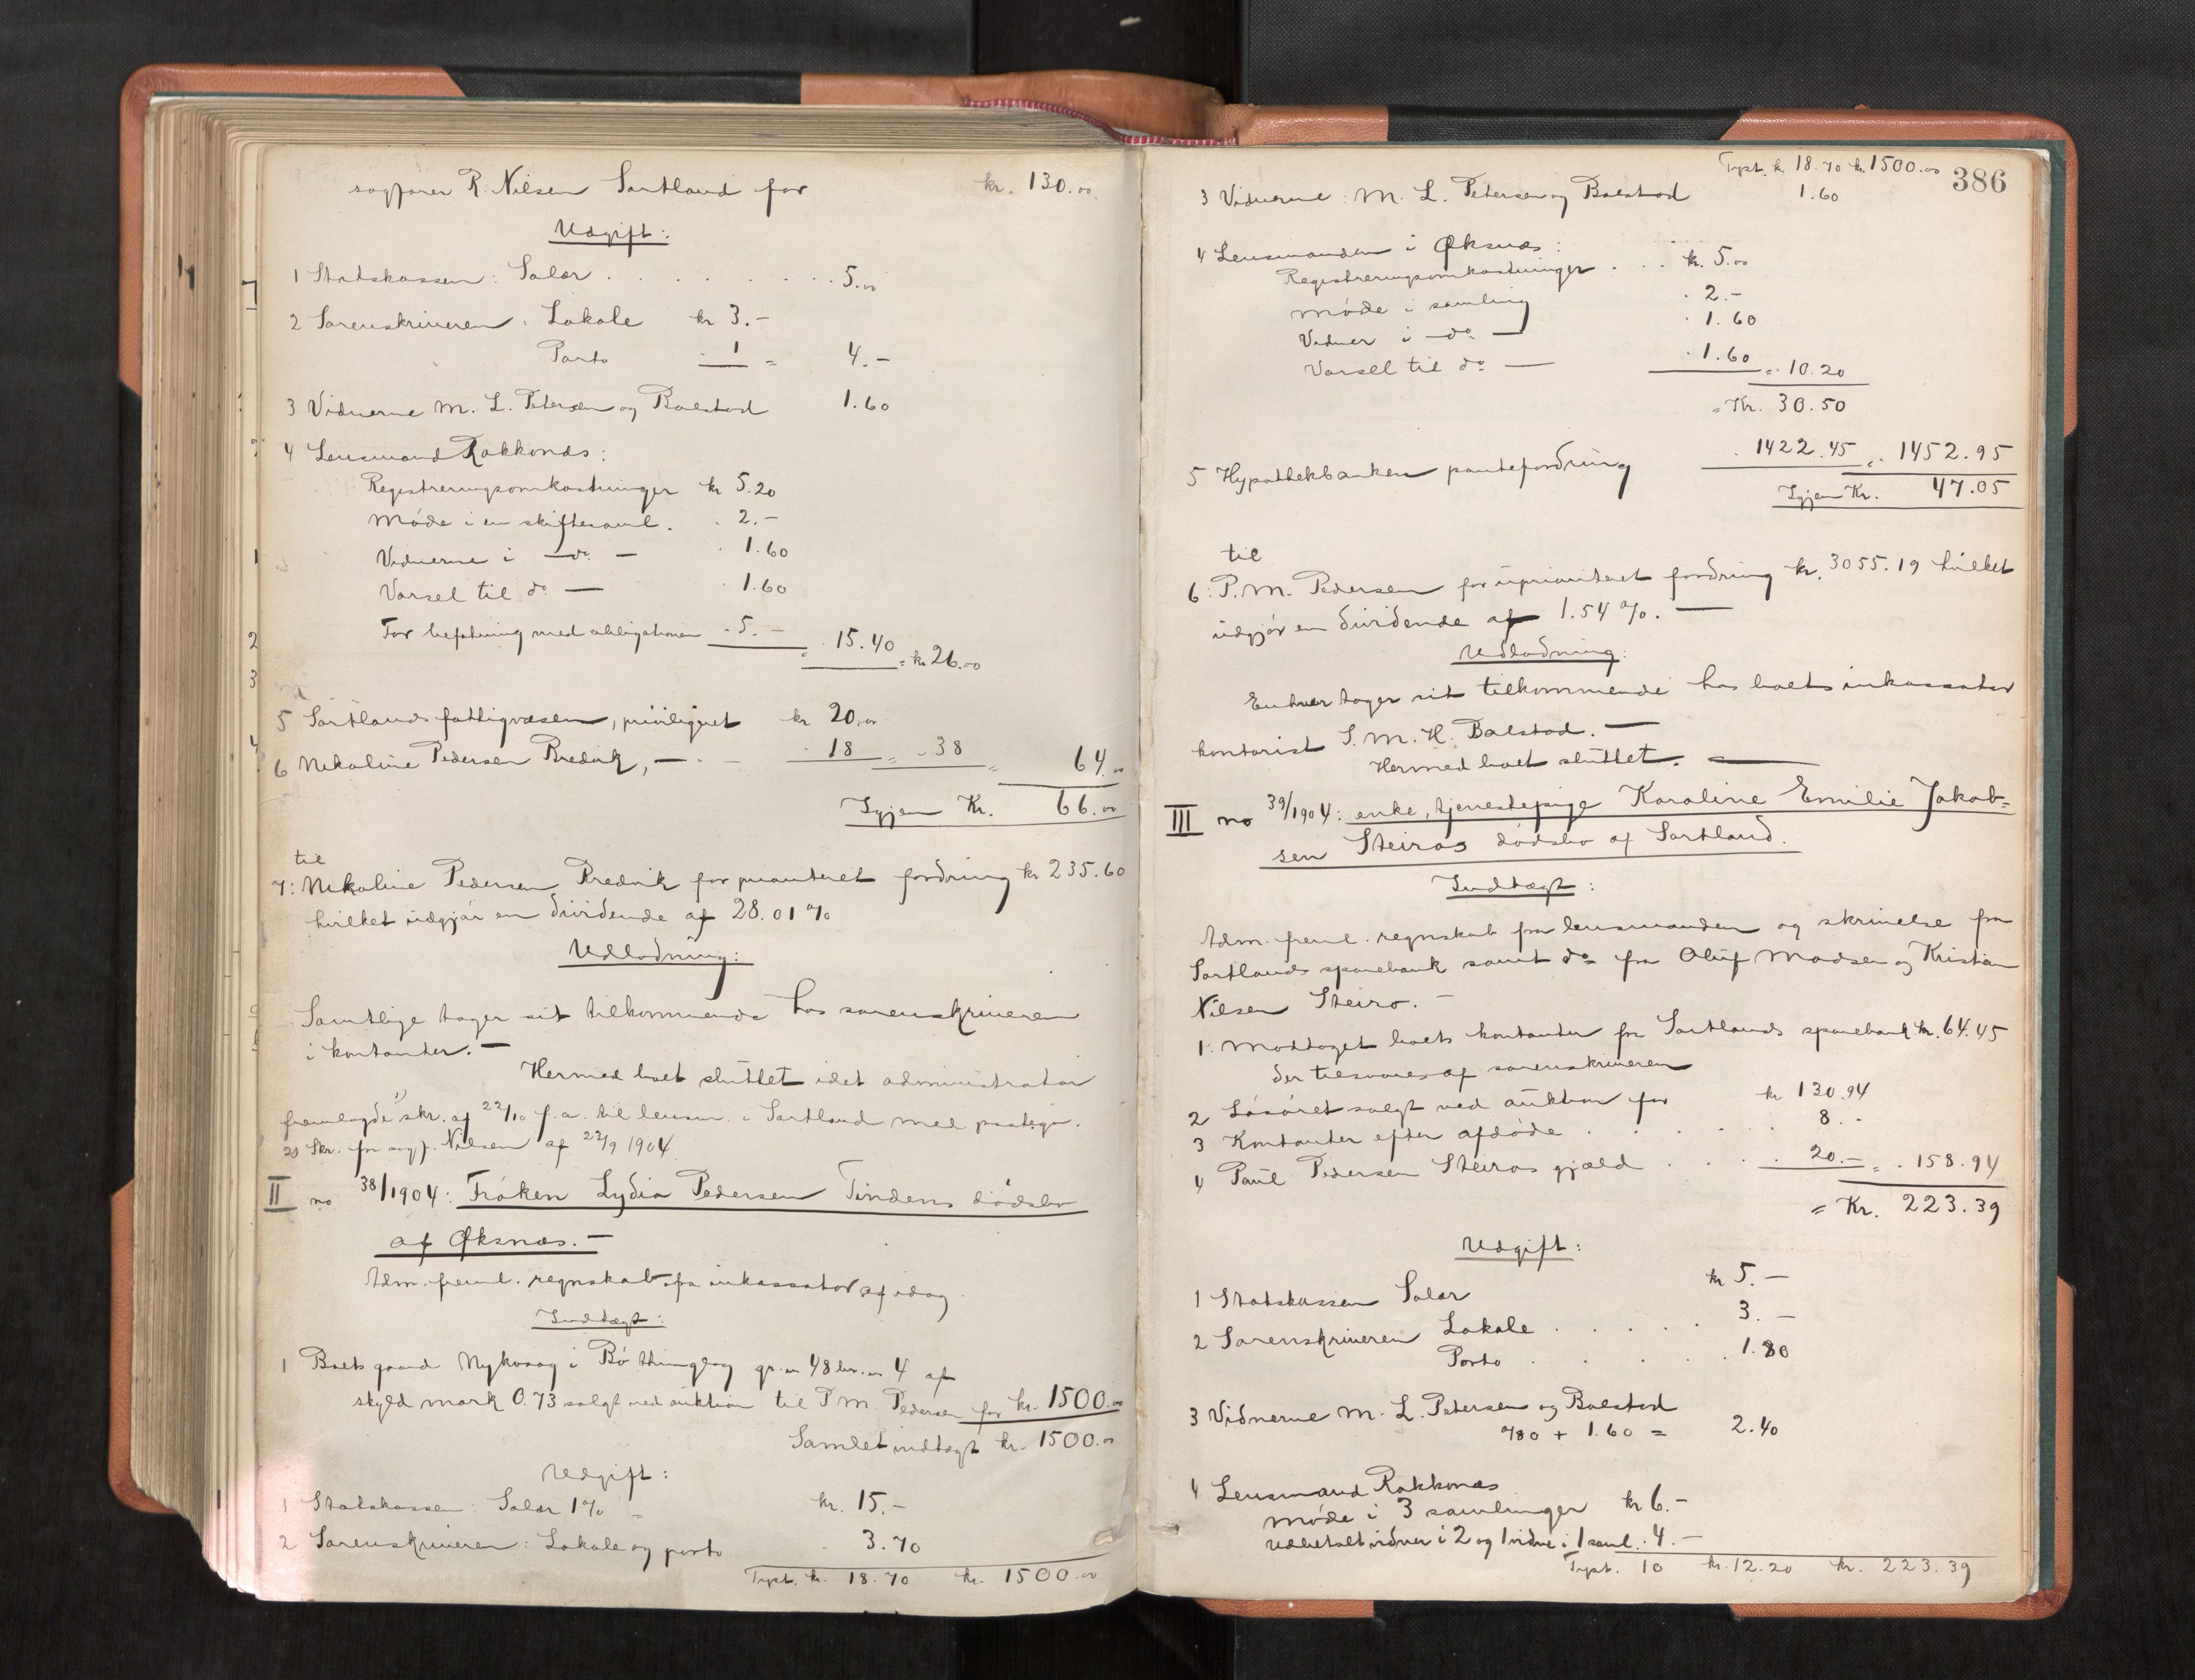 sagfører R. Nilsen Sortland for kr. 130.00
Udgift:
1 Statskassen: Salær . . . . . . . 5.00
2 Sorenskriveren: Lokale kr 3.-
Porto 1 = 4.-
3 Vidnerne M. L. Petersen og Balstad 1.60
4 Lensmand Rokkonæs:
Registreringsomkostninger kr 5.20
Møde i en skiftesaml. 2.-
Vidnerne i - do - 1.60
Varsel til do - 1.60
For befatning med obligationen 5.- = 15.40 = kr 26.00
5 Sortlands fattigvæsen, priviligeret kr 20.00
6 Nikoline Pedersen Bredvik, - " - 18 = 38 = 64.00
Igjen Kr. 66.00
til
7: Nikoline Pedersen Bredvik for prioriteret fordring kr 235.60
hvilket udgjør en dividende af 28.01 %
Udlodning:
Samtlige tager sit tilkommende hos sorenskriveren
i kontanter. -
Hermed boet sluttet idet administrator
fremlagde 1) skr. af 22/10 f.a. til lensm. i Sortland med paategn.
2) Skr. fra sagf. Nilsen af 22/9 1904.
II no 38/1904: Frøken Lydia Pedersen Tindens dødsbo
af Øksnes. -
Adm. freml. regnskab fra inkassator af idag
Indtægt:
1 Boets gaard Nykvaag i Bø thinglag gr. no 48 br. no 4 af
skyld mark 0.73 solgt ved auktion til P. M. Pedersen for kr. 1500.00
Samlet indtægt kr. 1500.00
Udgift:
1 Statskassen: Salær 1% = kr. 15.-
2 Sorenskriveren: Lokale og porto 3.70
Trpt. kr. 18.70 kr. 1500.00
Trpt. kr. 18.70 kr. 1500.00 386
3 Vidnerne: M. L. Petersen og Balstad 1.60
4 Lensmanden i Øksnæs:
Registreringsomkostninger . . . kr. 5.00
Møde i samling 2.-
Vidner i - do - 1.60
Varsel til do - 1.60 = 10.20
= Kr. 30.50
5 Hypothekbanken pantefordring 1422.45 = 1452.95
Igjen Kr. 47.05
til
6: P. M. Pedersen for uprioriteret fordring kr. 3055.19 hvilket
udgjør en dividende af 1.54 %. -
Udlodning:
Enhver tager sit tilkommende hos boets inkassator
kontorist S. M. H. Balstad. -
Hermed boet sluttet. -
III no 39/1904: enke, tjenestepige Karoline Emilie Jakob=
sen Steiros dødsbo af Sortland.
Indtægt:
Adm. freml. regnskab fra lensmanden og skrivelse fra
Sortlands sparebank samt do fra Oluf Madsen og Kristian
Nilsen Steiro. -
1. Modtaget boets kontanter fra Sortlands sparebank kr. 64.45
der tilsvares af sorenskriveren
2 Løsøret solgt ved auktion for kr 130.94
3 Kontanter efter afdøde . . . . . 8.-
4 Paul Pedersen Steiros gjæld . . . . 20.- = 158.94
= Kr. 223.39
Udgift:
1 Statskassen Salær kr 5.-
2 Sorenskriveren Lokale . . . . . 3.-
Porto . . . . . 1.80
3 Vidnerne M. L. Petersen og Balstad
0/80 + 1.60 = 2.40
4 Lensmand Rokkonæs
Møde i 3 samlinger kr 6.-
Udbetalt vidner i 2 og 1 vidne i 1 saml. 4.-
Trpt. 10 kr. 12.20 kr. 223.39